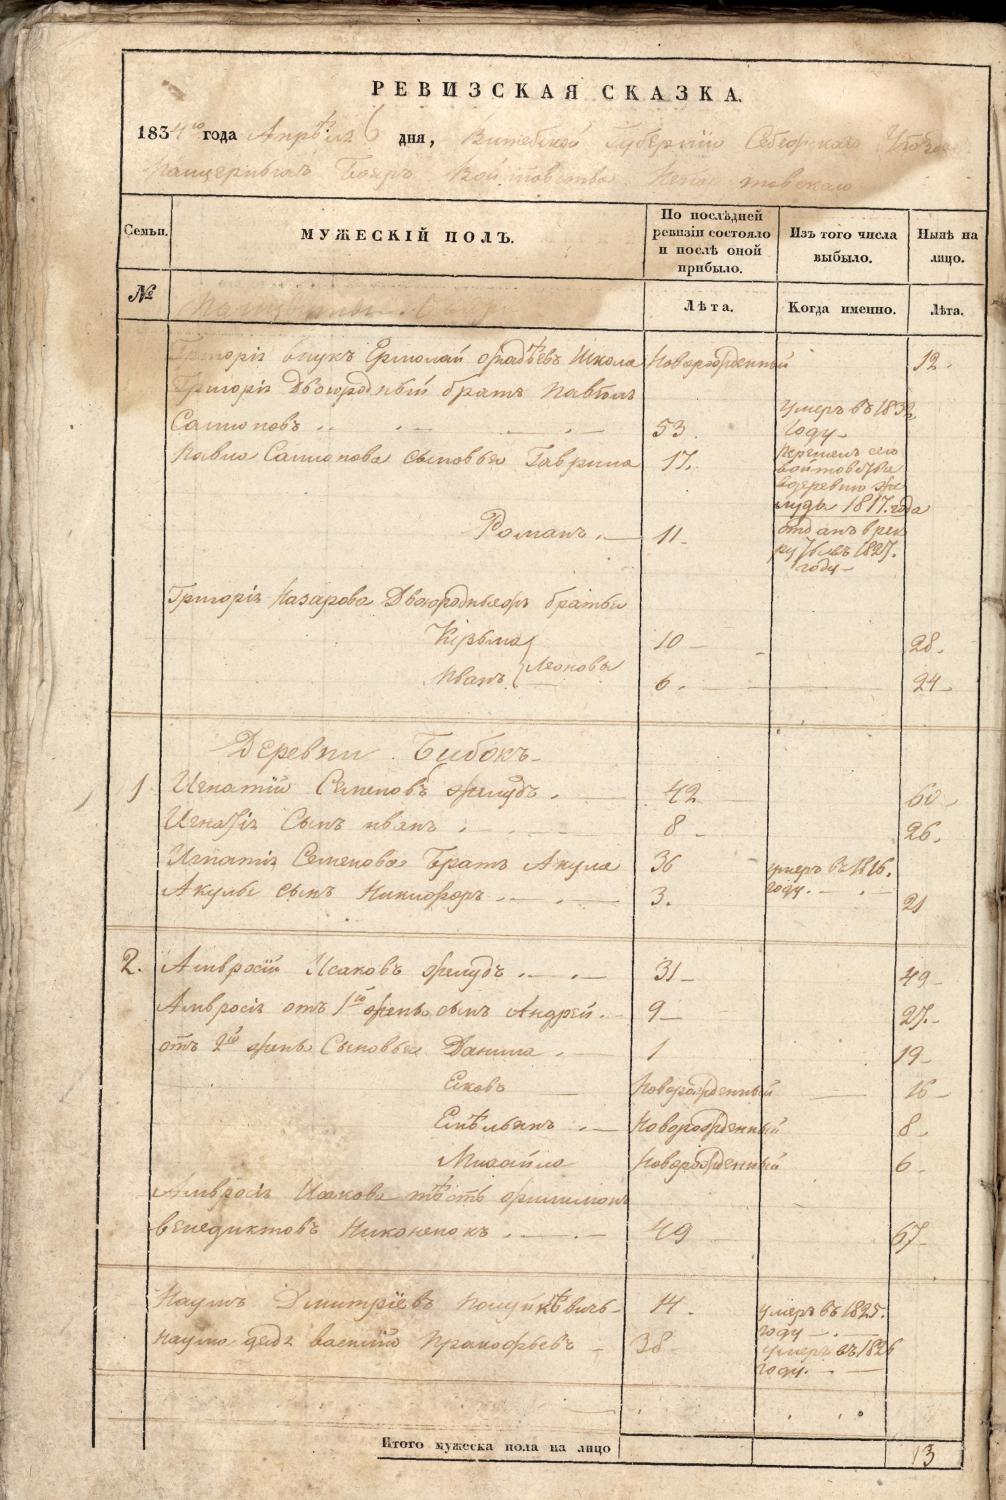 РЕВИЗСКАЯ СКАЗКА.
1834го года Апрѣля 6 дня, Витебской Губернiи Себежскаго
Панцерныхъ Бояръ Войтовства
Семьи.
МУЖЕСКІЙ ПОЛЪ.
По послѣдней ревизіи состояло и послѣ оной прибыло.
Изъ того числа выбыло.
Нынѣ на лицо.
№
Лѣта.
Когда именно.
Лѣта.
Григорія внукъ Ермолай Фадѣевъ Школа Новорожденный 12.
Григорія Двоюродный братъ Павѣлъ
Самсоновъ 53. умеръ въ 1832 году
Павла Самсонова сыновья Гаврила 17. перешелъ сего войтовства въ деревню Желуды 1817. года
Романъ 11 отданъ в рекруты въ 1827. году
Григорія Назарова Двоюродныхъ братья
Кузьма 10 28.
Иванъ Леоновы 6. 24
Деревни Бибокъ
1 Игнатій Семеновъ Желудь. 42 60
Игнатія Сынъ Иванъ. 8 26.
Игнатія Семенова Братъ Акула 36 умеръ въ 1816. году.
Акулы сынъ Никифоръ 3. 21
2. Амвросій Исаковъ Желудь 31 49
Амвросія отъ 1й жены сынъ Андрей. 9 27.
отъ 2й жены Сыновья Данила 1 19
Яковъ Новорожденный 16
Емѣльянъ Новорожденный 8.
Михайло Новорожденный 6.
Амвросія Исакова тѣсть Филимонъ
Венедиктовъ Никоненокъ 49 67
Наумъ Дмитріевъ 14. умеръ въ 1825. году
Наума дядя Василій Прокофьевъ 38 умеръ въ 1826 году.
Итого мужеска пола на лицо 13